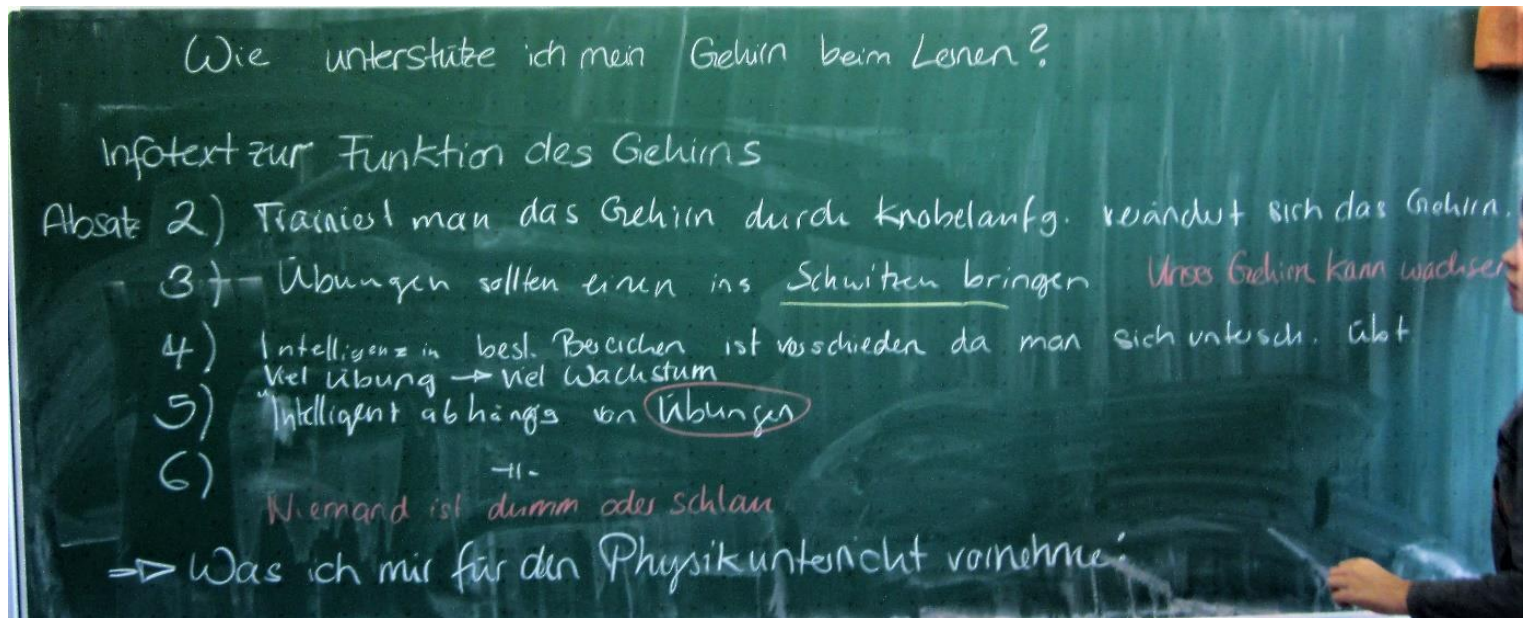 Wie unterstütze ich mein Gehirn beim Lernen?
Infotext zur Funktion des Gehirns
Absatz 2) Trainiert man das Gehirn durch Knobelaufg. verändert sich das Gehirn.
3) - Übungen sollten einen ins Schwitzen bringen Unser Gehirn kann wachsen
4) Intelligenz in best. Bereichen ist verschieden da man sich untersch. übt
Viel Übung → viel Wachstum
5) Intelligent abhängig von Übungen
6) -11-
Niemand ist dumm oder schlau
⇒ Was ich mir für den Physikunterricht vornehme: